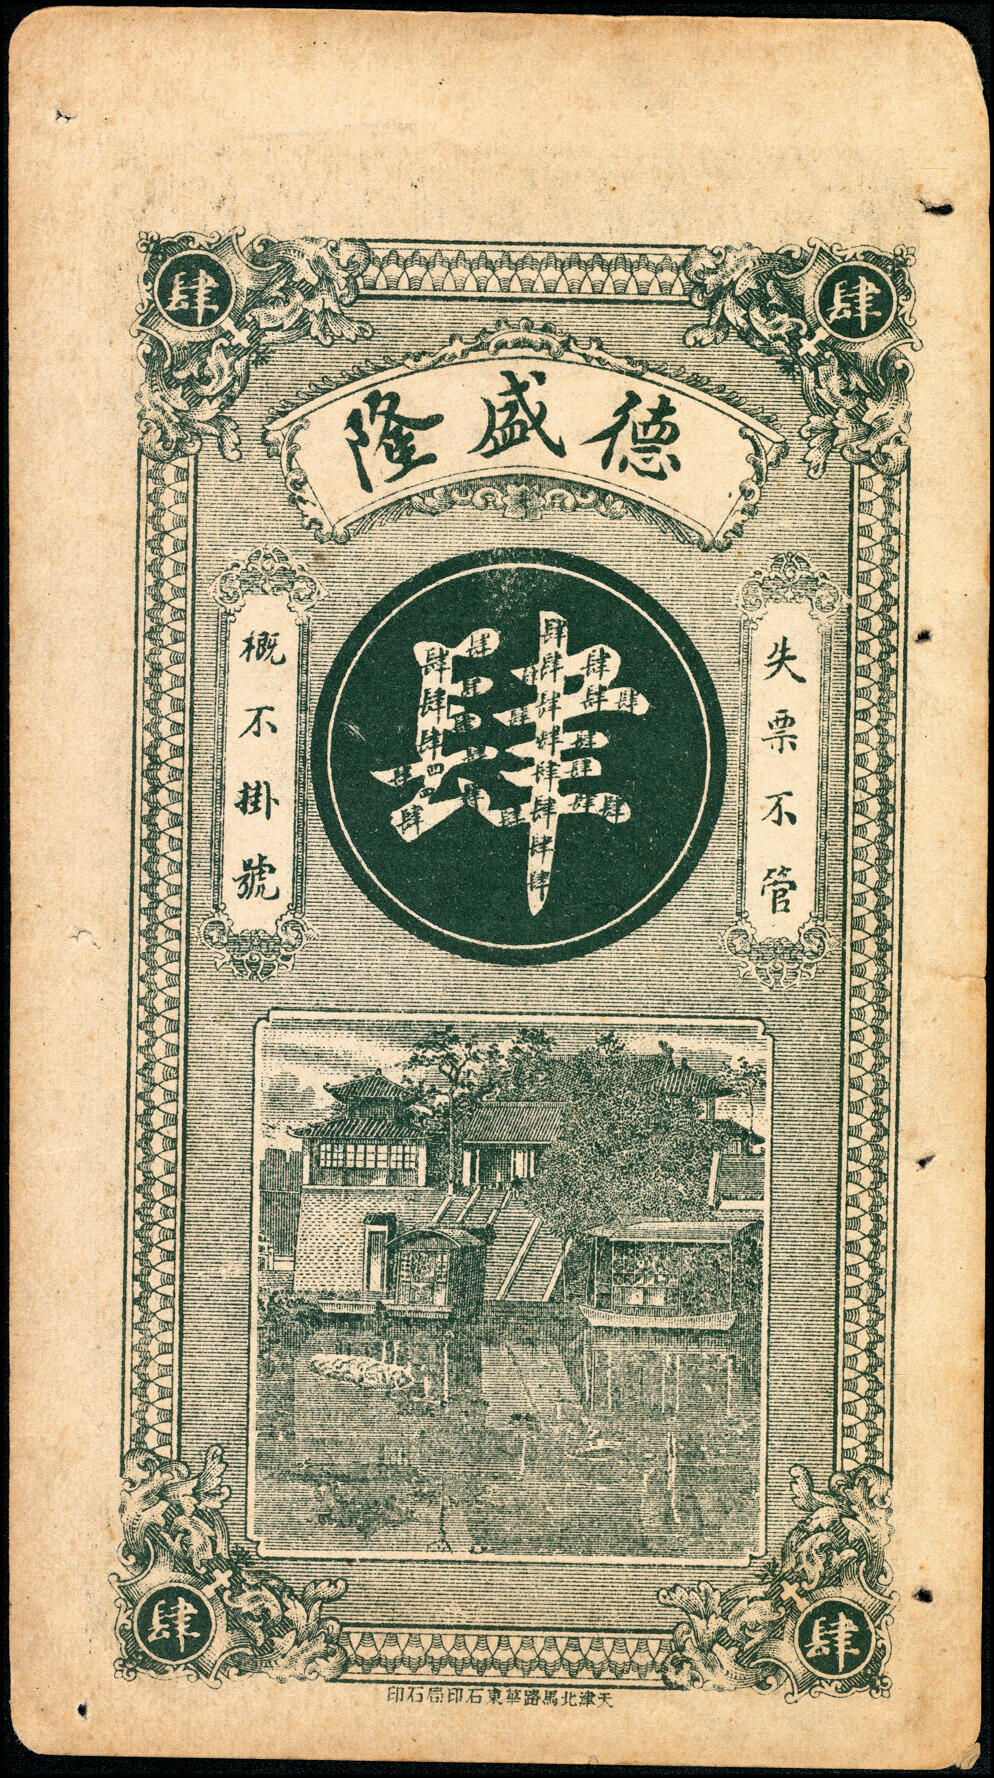 肆
肆
德盛隆
失票不管
肆
概不掛號
肆
肆
天津北馬路華東石印局石印